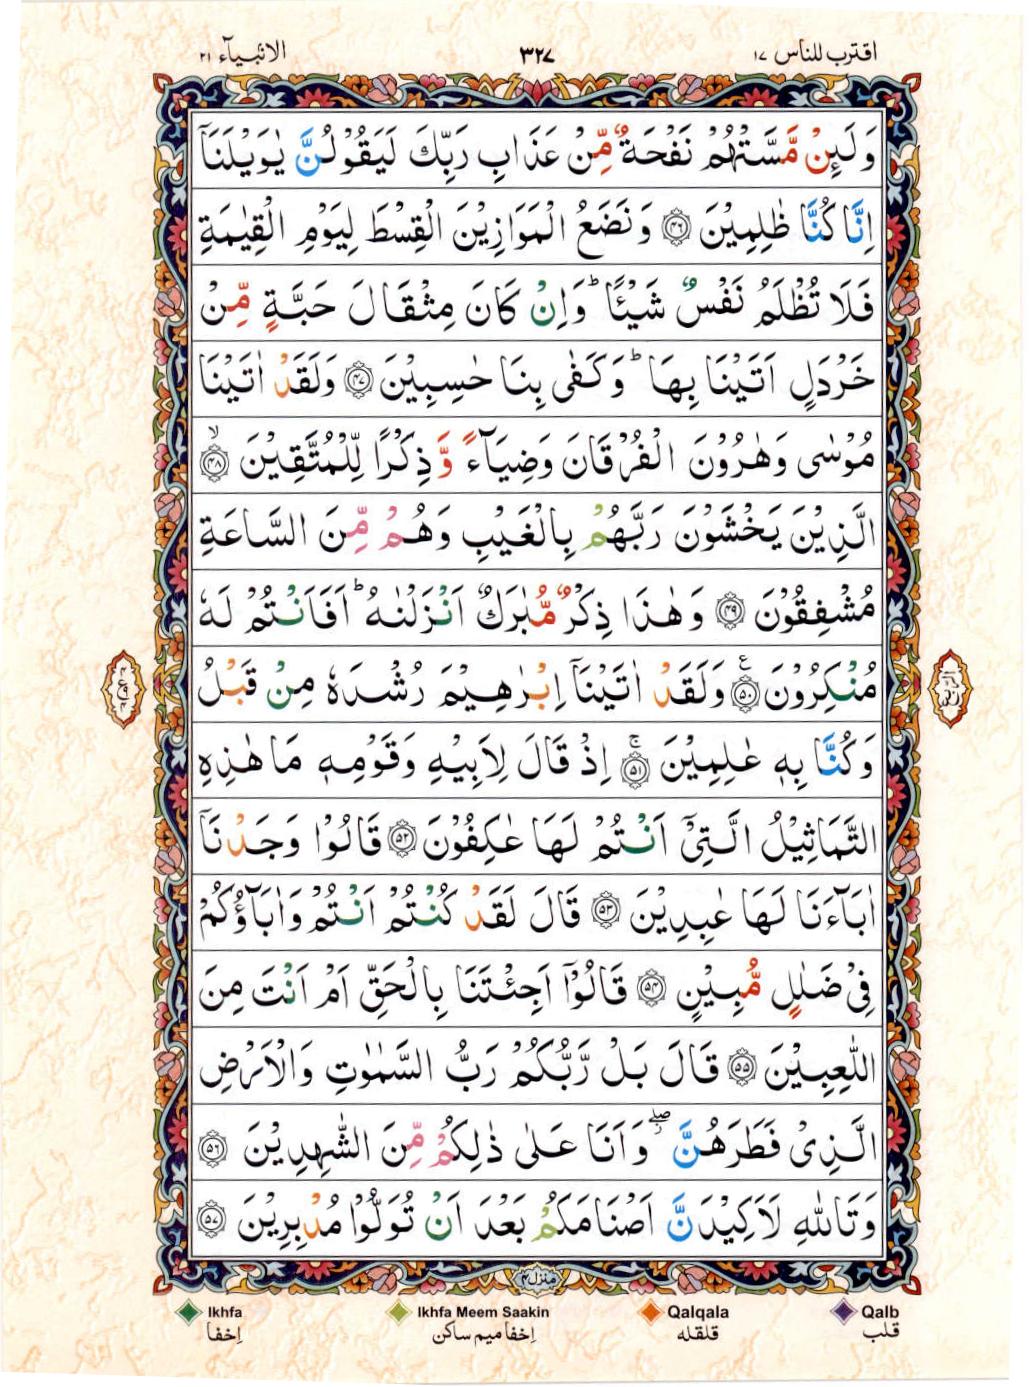 اقترب للناس ١٧
٣٢٧
الانبیآء ٢١
وَلَىِٕنْ مَّسَّتْهُمْ نَفْحَةٌ مِّنْ عَذَابِ رَبِّكَ لَیَقُوْلُنَّ یٰوَیْلَنَاۤ
اِنَّا كُنَّا ظٰلِمِیْنَ ﴿٤٦﴾ وَنَضَعُ الْمَوَازِیْنَ الْقِسْطَ لِیَوْمِ الْقِیٰمَةِ
فَلَا تُظْلَمُ نَفْسٌ شَیْـًٔا ؕ وَاِنْ كَانَ مِثْقَالَ حَبَّةٍ مِّنْ
خَرْدَلٍ اَتَیْنَا بِهَا ؕ وَكَفٰی بِنَا حٰسِبِیْنَ ﴿٤٧﴾ وَلَقَدْ اٰتَیْنَا
مُوْسٰی وَهٰرُوْنَ الْفُرْقَانَ وَضِیَآءً وَّذِكْرًا لِّلْمُتَّقِیْنَ ۙ﴿٤٨﴾
الَّذِیْنَ یَخْشَوْنَ رَبَّهُمْ بِالْغَیْبِ وَهُمْ مِّنَ السَّاعَةِ
مُشْفِقُوْنَ ﴿٤٩﴾ وَهٰذَا ذِكْرٌ مُّبٰرَكٌ اَنْزَلْنٰهُ ؕ اَفَاَنْتُمْ لَهٗ
مُنْكِرُوْنَ ﴿٥٠﴾ ع وَلَقَدْ اٰتَیْنَاۤ اِبْرٰهِیْمَ رُشْدَهٗ مِنْ قَبْلُ
وَكُنَّا بِهٖ عٰلِمِیْنَ ۚ﴿٥١﴾ اِذْ قَالَ لِاَبِیْهِ وَقَوْمِهٖ مَا هٰذِهِ
التَّمَاثِیْلُ الَّتِیْۤ اَنْتُمْ لَهَا عٰكِفُوْنَ ﴿٥٢﴾ قَالُوْا وَجَدْنَاۤ
اٰبَآءَنَا لَهَا عٰبِدِیْنَ ﴿٥٣﴾ قَالَ لَقَدْ كُنْتُمْ اَنْتُمْ وَاٰبَآؤُكُمْ
فِیْ ضَلٰلٍ مُّبِیْنٍ ﴿٥٤﴾ قَالُوْۤا اَجِئْتَنَا بِالْحَقِّ اَمْ اَنْتَ مِنَ
اللّٰعِبِیْنَ ﴿٥٥﴾ قَالَ بَلْ رَّبُّكُمْ رَبُّ السَّمٰوٰتِ وَالْاَرْضِ
الَّذِیْ فَطَرَهُنَّ ۖ وَاَنَا عَلٰی ذٰلِكُمْ مِّنَ الشّٰهِدِیْنَ ﴿٥٦﴾
وَتَاللّٰهِ لَاَكِیْدَنَّ اَصْنَامَكُمْ بَعْدَ اَنْ تُوَلُّوْا مُدْبِرِیْنَ ﴿٥٧﴾
منزل ٤
Ikhfa
اِخفا
Ikhfa Meem Saakin
اِخفا میم ساکن
Qalqala
قلقله
Qalb
قلب